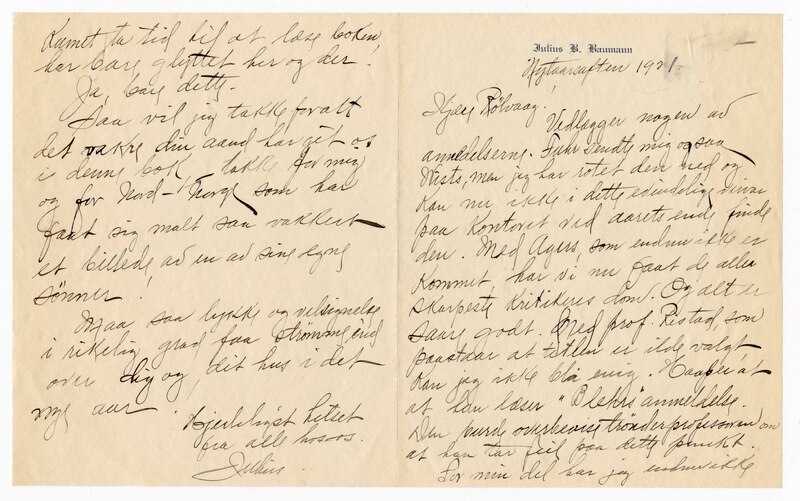 Julius B. Baumann
Nytaarsaften 1921.
Kjære Rölvaag!
Vedlægger nogen av
anmeldelserne. Fuhr sendte mig ogsaa
Wists, men jeg har rotet den ned og
kan nu ikke i dette
paa kontoret ved aarets ende finde
den. Med Agers, som endnu ikke er
kommet, har vi nu faat de aller
skarpeste kritikeres dom. Og alt er
saare godt. Med prof. Ristad, som
paastaar at titlen er ilde valgt,
kan jeg ikke bli enig. Haaper at
at han læser "Blehrs" anmeldelse.
Den burde overbevise trønderprofessoren om
at han tar feil paa dette punkt.
For min del har jeg endnu ikke
kunnet ta tid til at læse boken,
har bare glyttet her og der.
Ja, bare dette.
Saa vil jeg takke for alt
det vakre din aand har git os
i denne bok, takke for mig
og for Nord-Norge som har
faat sig malt saa vakkert
et billede av en av sine egne
sønner!
Maa saa lykke og velsignelse
i rikelig grad faa strømme ned
over dig og dit hus i det
nye aar.
Hjerteligst hilset
fra alle hos os.
Julius.